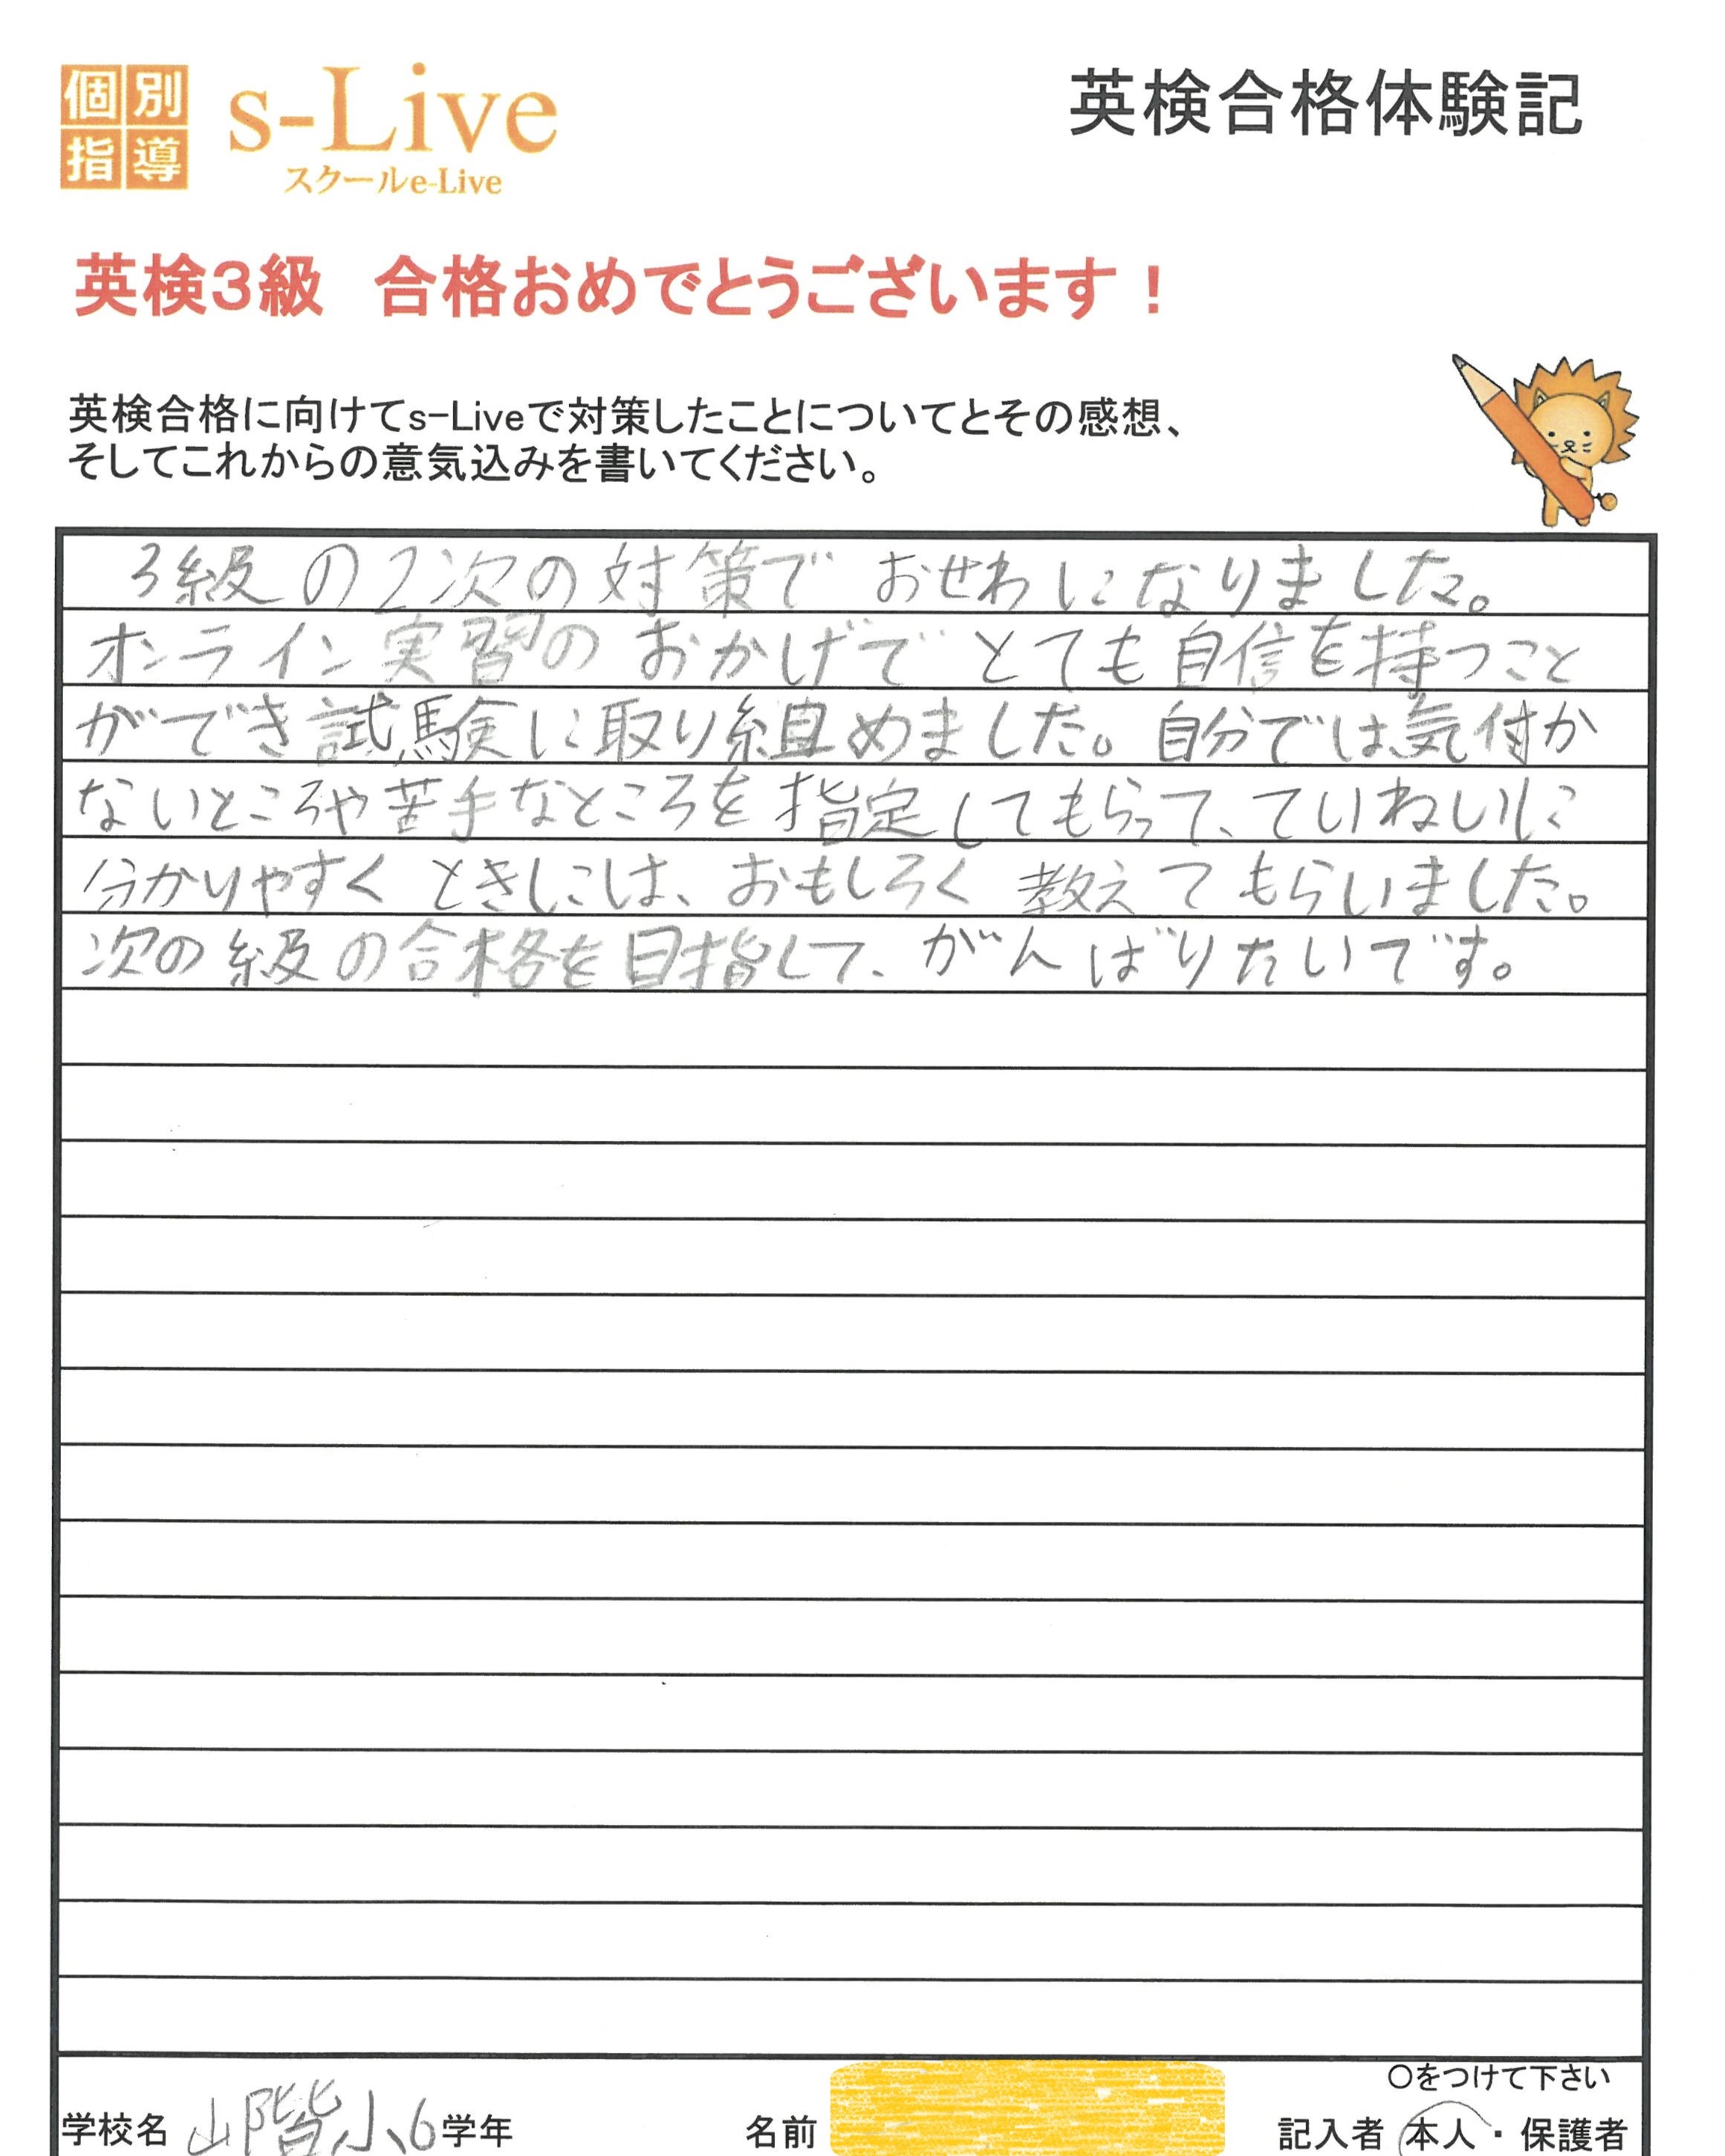 個別
指導
s-Live
スクールe-Live
英検合格体験記
英検3級　合格おめでとうございます！
英検合格に向けてs-Liveで対策したことについてとその感想、
そしてこれからの意気込みを書いてください。
3級の2次の対策で おせわになりました。
オンライン実習の おかげで とても自信を持つこと
ができ試験に取り組めました。自分では気付か
ないところや苦手なところを指定してもらって、ていねいに
分かりやすく ときには、おもしろく 教えてもらいました。
次の級の合格を目指して、がんばりたいです。
〇をつけて下さい
学校名 山階小6学年 名前 記入者 本人・保護者